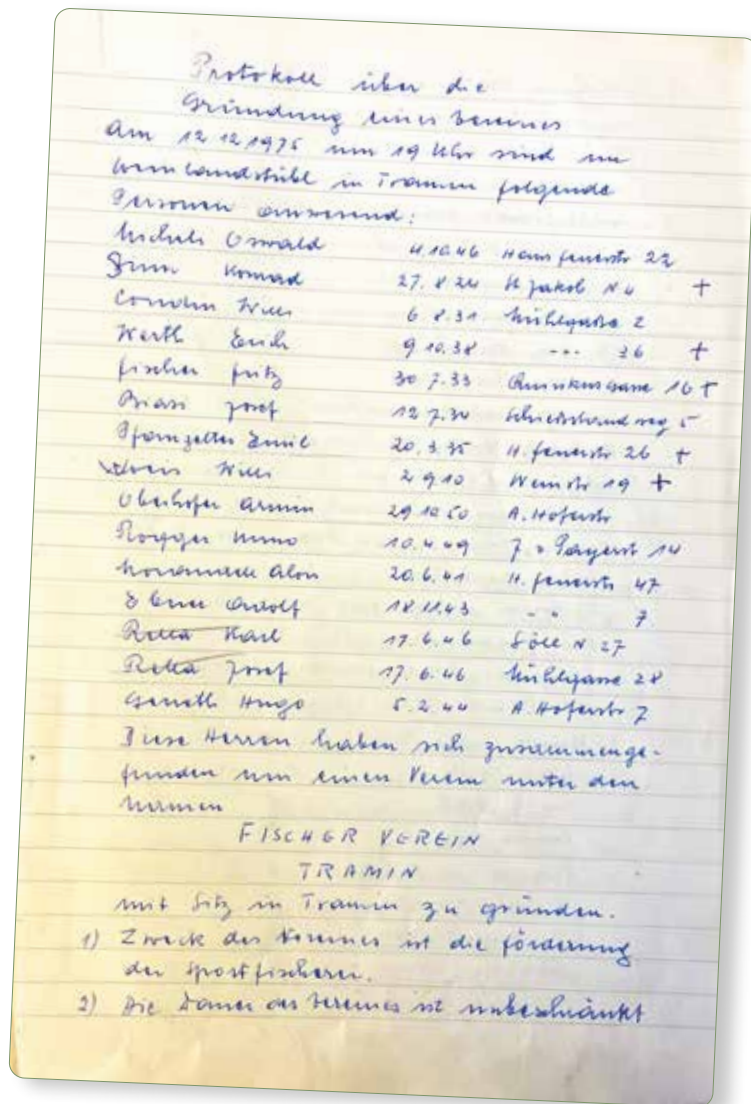 Protokoll über die
Gründung eines Vereines
Am 12 12 1975 um 19 Uhr sind im
Weinlandstübl in Tramin folgende
Personen anwesend:
Micheli Oswald 4.10.46 Hans feuerstr 22
Konrad 27. 8 24 St Jakob N 4 +
Willi 6 8.31 Mühlgasse 2
Werth Erich 9 10.38 -"- 36 +
Fischer Fritz 30 7.33 16 +
Biasi Josef 12 7.34 Schiesstandweg 5
Pfamzelter Emil 20.3.35 H. feuerstr 26 +
Willi 2 9 10 Weinstr 19 +
Oberhofer Armin 29 10 50 A. Hoferstr
Rogger 10.4.49 J. v Payerstr 14
Alois 20.6.41 H. feuerstr 47
Ebner Adolf 18.11.43 - " - 7
Rella Karl 17.6.46 Söll N 27
Rella Josef 17.6.46 Mühlgasse 28
Hugo 5.2.44 A. Hoferstr 7
Diese Herren haben sich zusammenge-
funden um einen Verein unter den
Namen
FISCHER VEREIN
TRAMIN
mit Sitz in Tramin zu gründen.
1) Zweck des Vereines ist die förderung
der Sportfischerei.
2) Die Dauer des Vereines ist unbeschränkt